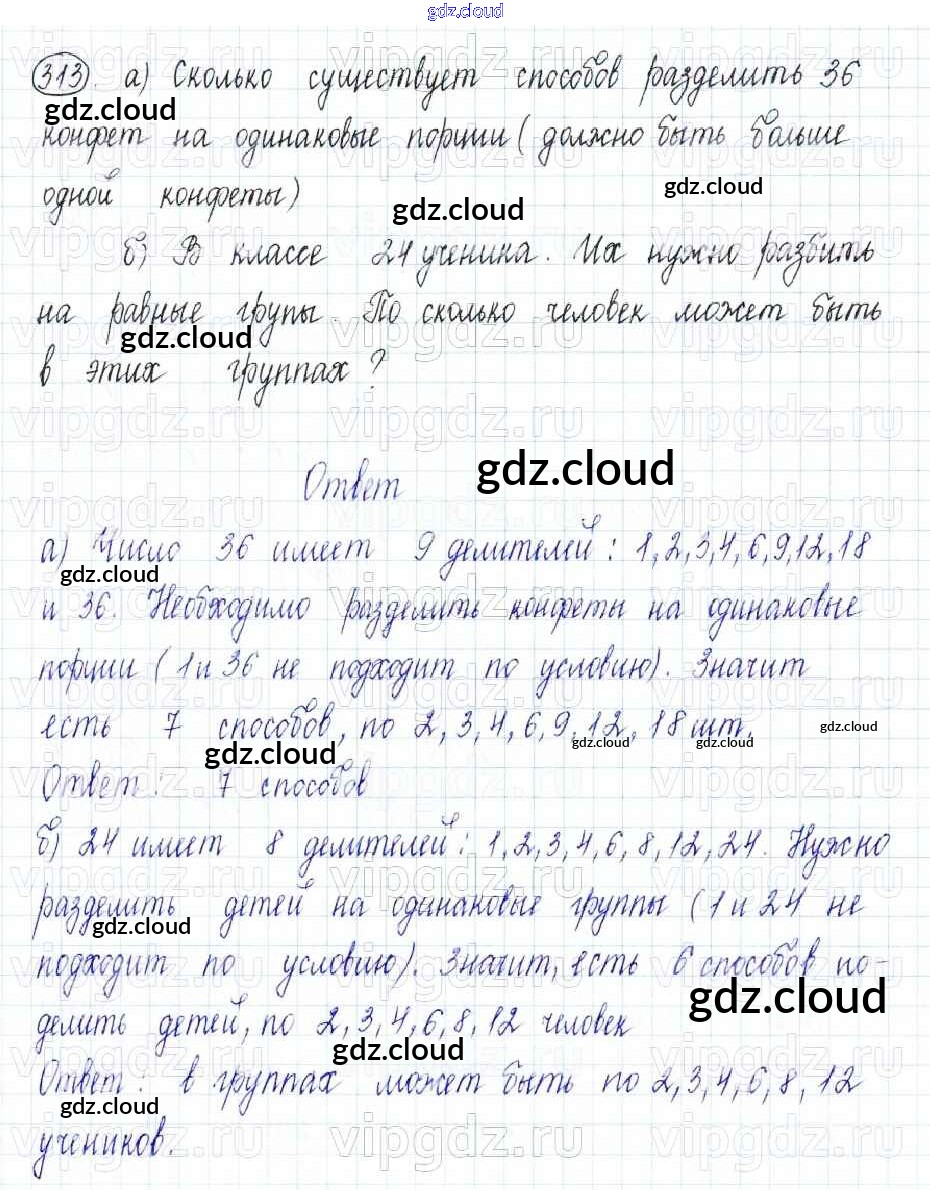 gdz.cloud
313 а) Сколько существует способов разделить 36
gdz.cloud
конфет на одинаковые порции (должно быть больше
gdz.cloud
одной конфеты)
gdz.cloud
б) В классе 24 ученика. Их нужно разбить
на равные групы. По сколько человек может быть
gdz.cloud
в этих группах?
vipgdz.ru vipgdz.ru vipgdz.ru
Ответ
gdz.cloud
а) Число 36 имеет 9 делителей: 1,2,3,4,6,9,12,18
gdz.cloud
и 36. Необходимо разделить конфеты на одинаковые
порции (1 и 36 не подходит по условию). Значит
есть 7 способов, по 2,3,4,6,9,12,18 шт.
gdz.cloud gdz.cloud gdz.cloud gdz.cloud
Ответ: 7 способов
б) 24 имеет 8 делителей: 1,2,3,4,6,8,12,24. Нужно
разделить детей на одинаковые группы (1 и 24 не
gdz.cloud
подходит по условию). Значит, есть 6 способов по-
gdz.cloud
делить детей, по 2,3,4,6,8,12 человек
gdz.cloud
Ответ: в группах может быть по 2,3,4,6,8,12
gdz.cloud
учеников.
vipgdz.ru vipgdz.ru